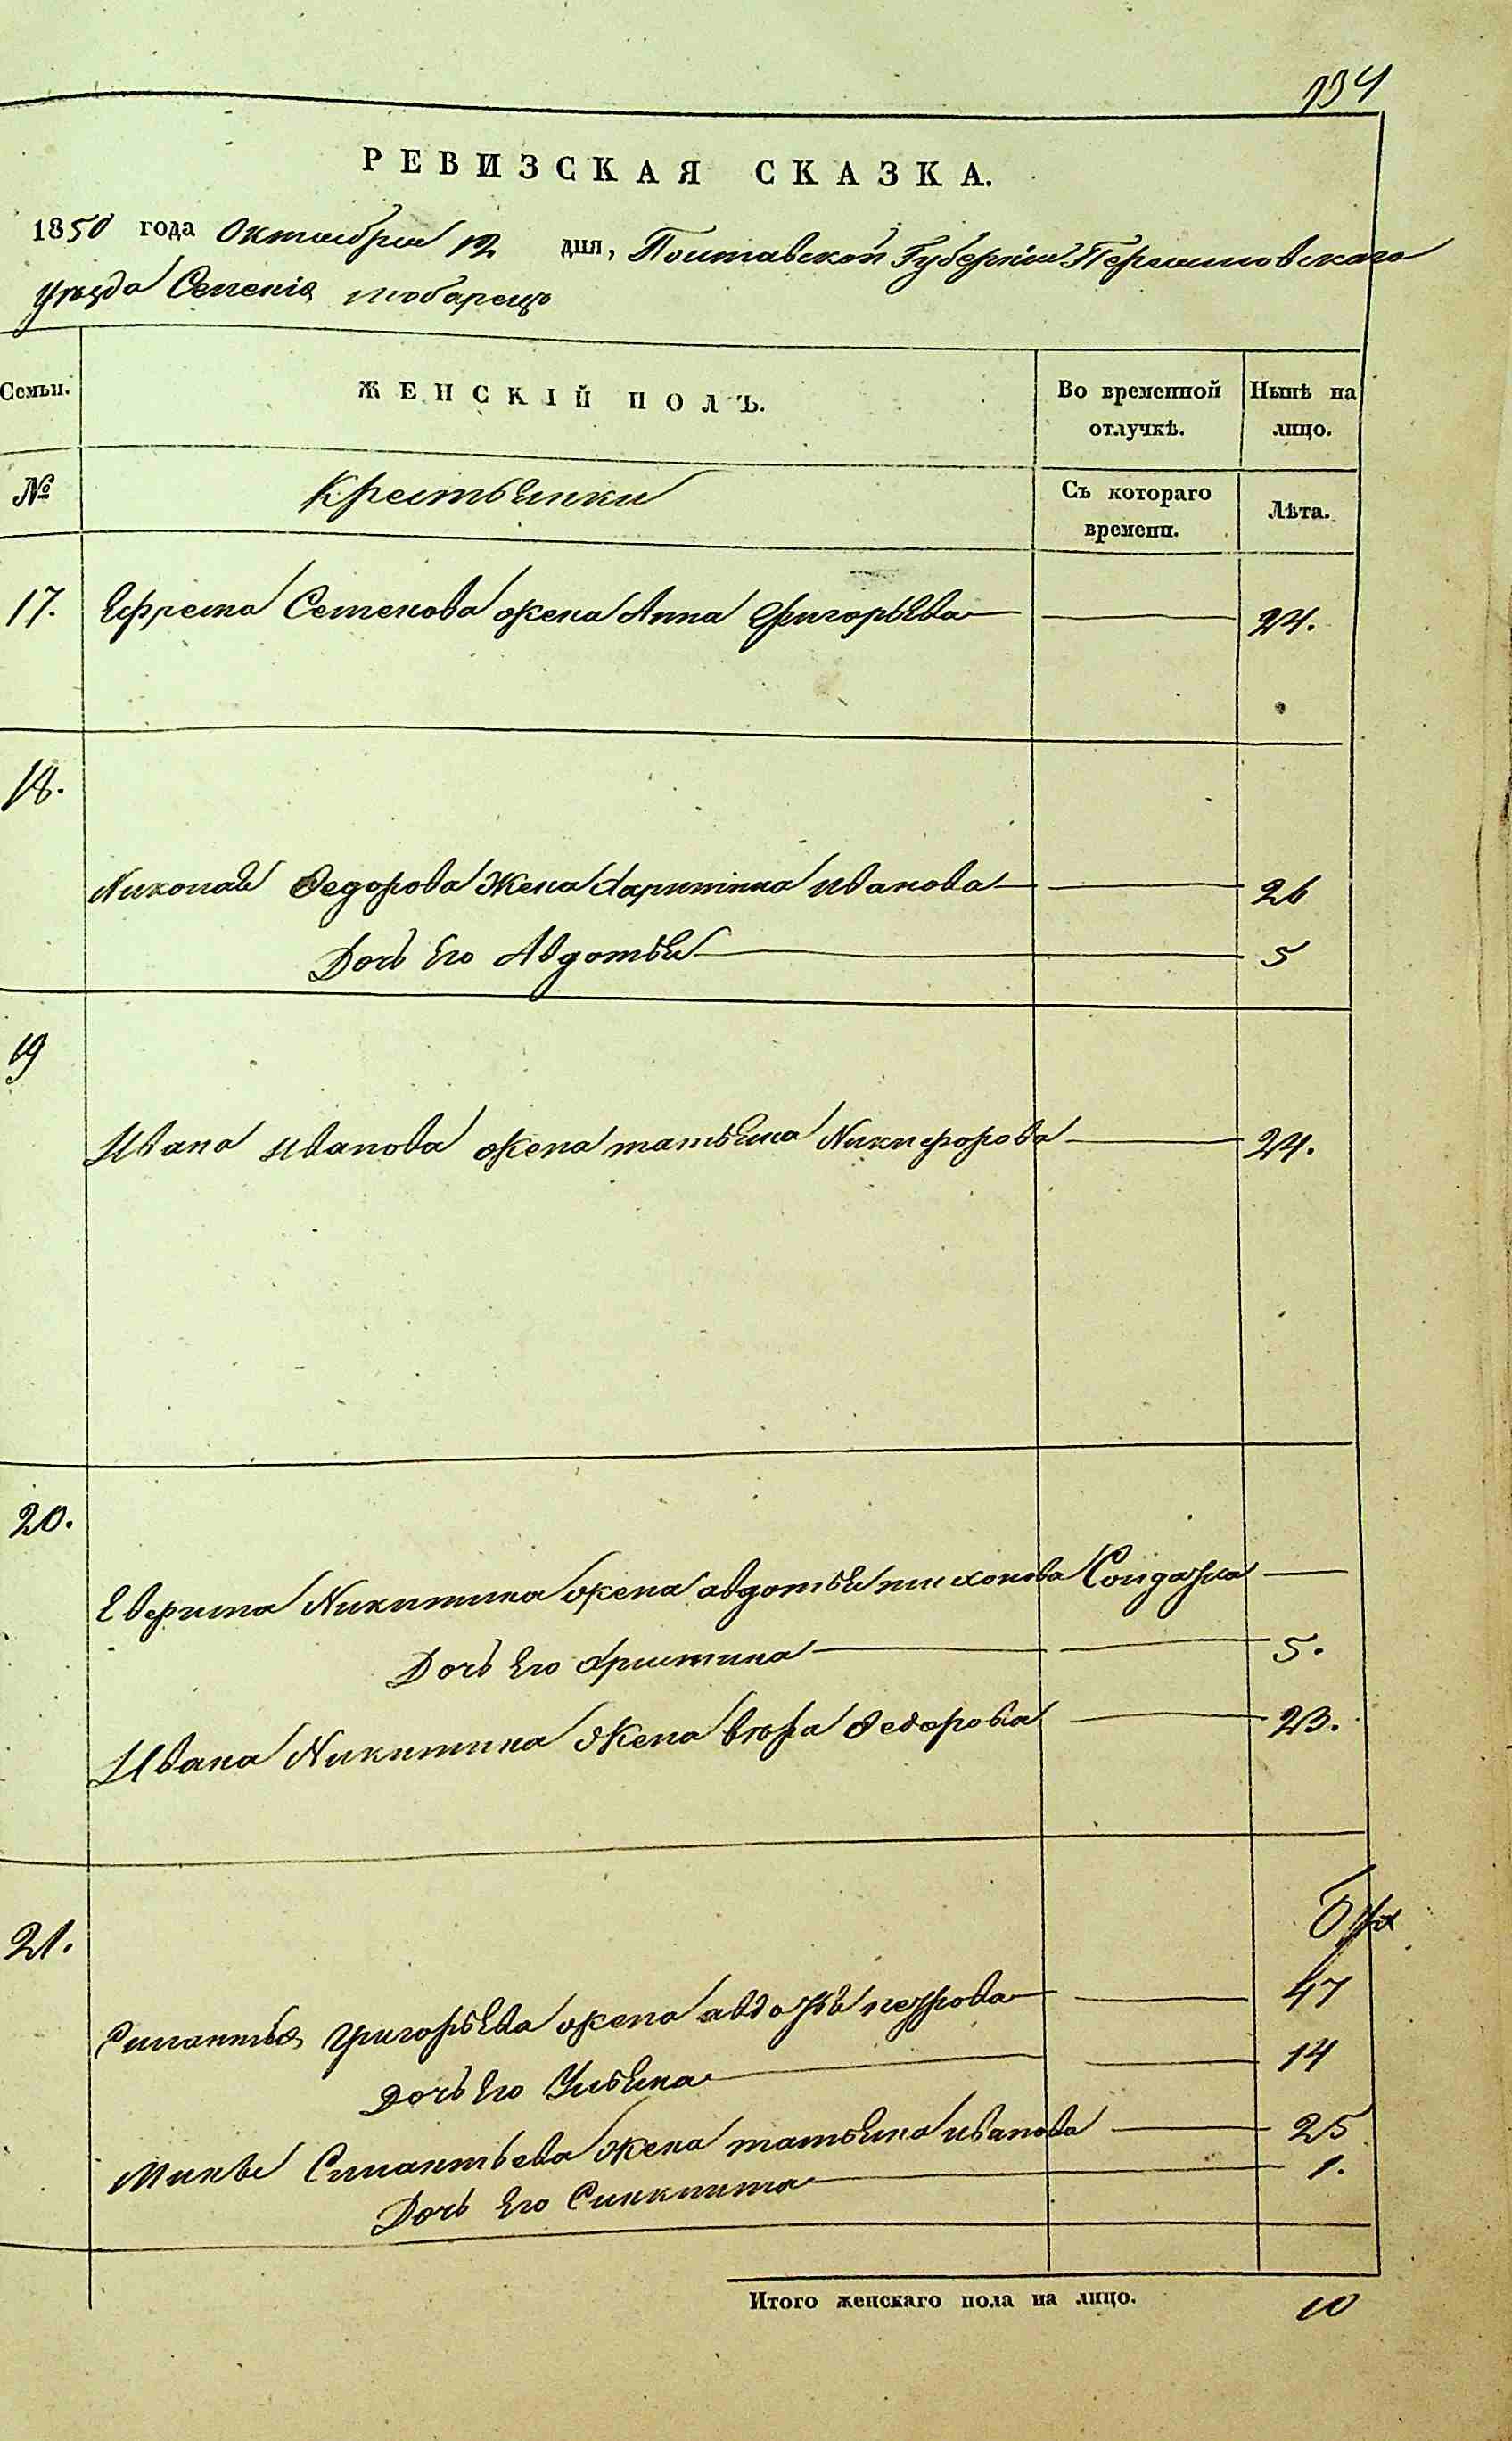 134
РЕВИЗСКАЯ СКАЗКА.
1850 года Октября 12 дня, Полтавской Губерніи Переяславскаго
уезда Селенія
Семьи.
ЖЕНСКІЙ ПОЛЪ.
Во временной отлучкѣ.
Нынѣ на лицо.
№
Крестьянки
Съ котораго времени.
Лѣта.
17. Ефрема Семенова жена Анна Григорьева 24.
18.
Николая Федорова Жена Харитина иванова 26
Дочь Его Авдотья 5
19
Ивана иванова жена татьяна Никифорова 24.
20.
Никитина жена авдотья тихонова Солдатка
Дочь Его Христина 5.
Ивана Никитина Жена вѣра Федорова 23.
21.
Силантія григорьева жена авдотья петрова 47
дочь Его Ульяна 14
Силантьева жена татьяна иванова 25
Дочь Его 1.
Итого женскаго пола на лицо. 10